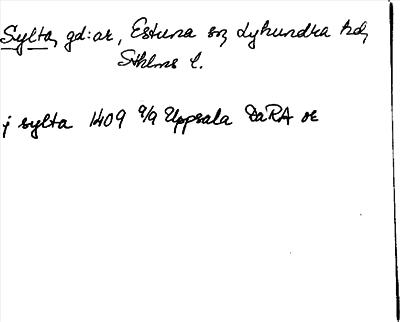 Sylta, gd:ar, Estuna sn, Lyhundra hd,
Sthlms l.
j sylta 1409 9/9 Uppsala DaRA or